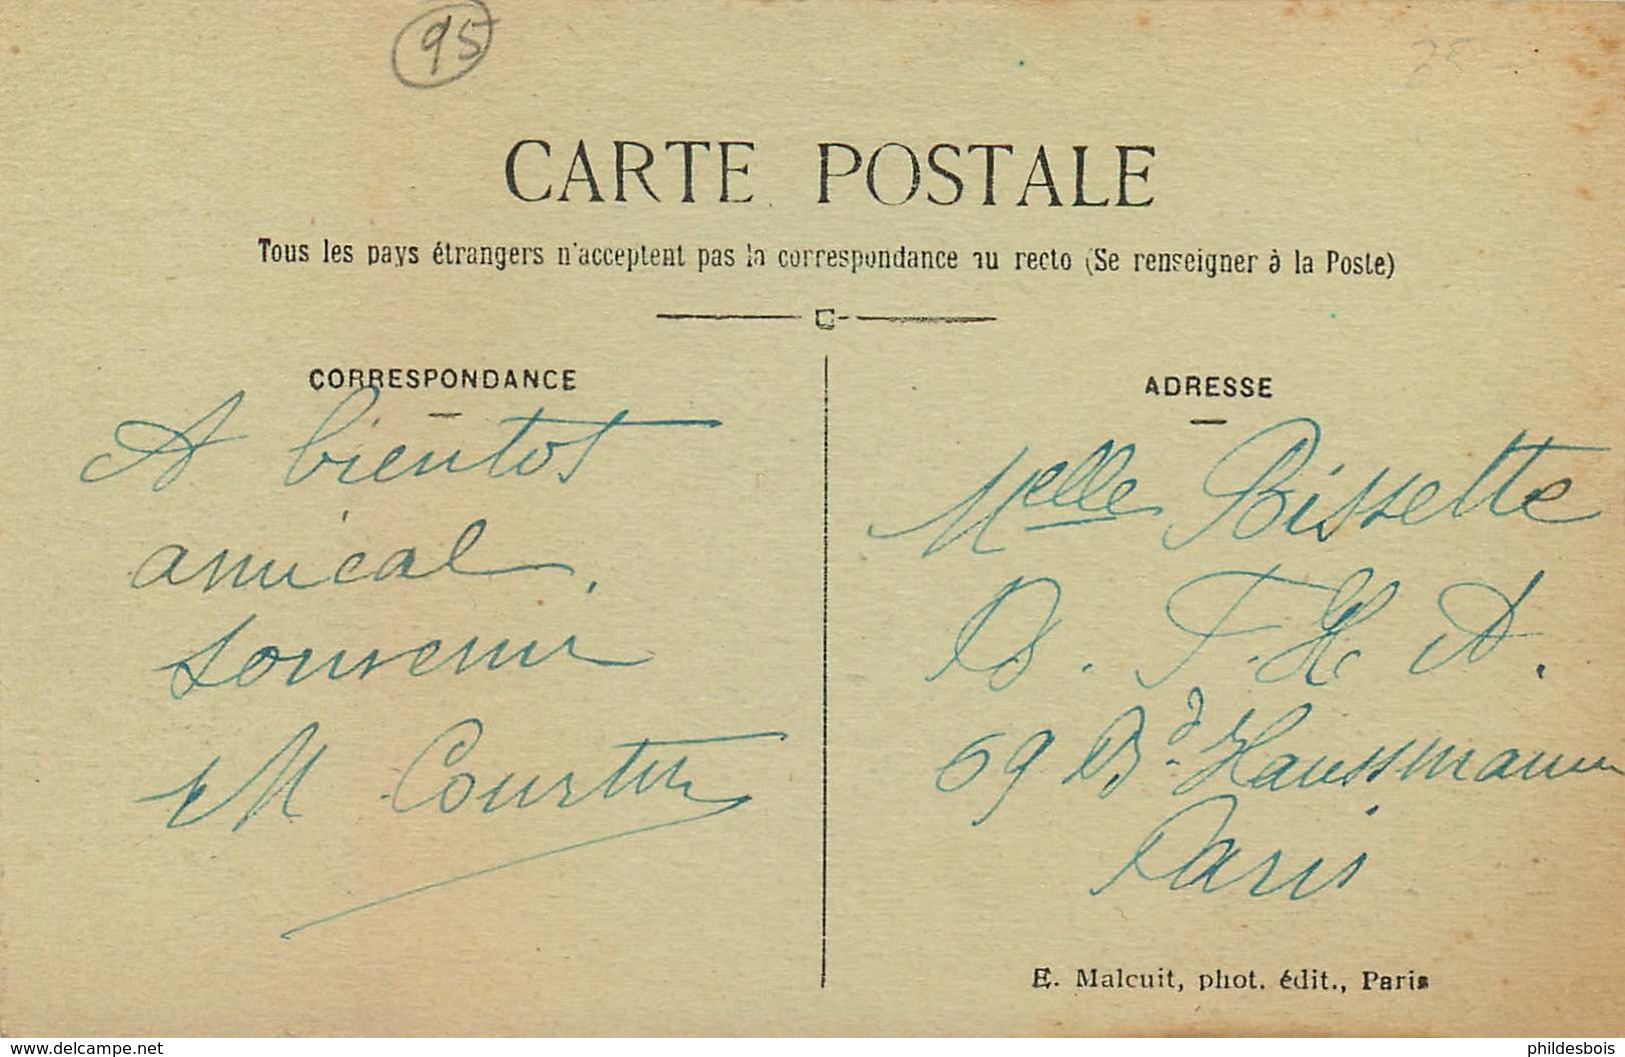 95
CARTE POSTALE
Tous les pays étrangers n'acceptent pas la correspondance au recto (Se renseigner à la Poste)
CORRESPONDANCE
A bientot
amical
souvenir
M Courtin
ADRESSE
Melle Bissette
B. T. H A.
69 Bd. Haussmann
Paris
E. Malcuit, phot. édit., Paris
www.delcampe.net
phildesbois